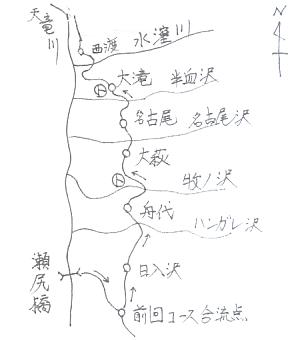 天竜川
N
西渡
水窪川
大滝
半血沢
ト
名古尾
名古尾沢
大萩
ト
牧ノ沢
舟代
ハンガレ沢
瀬尻橋
日入沢
前回コース合流点